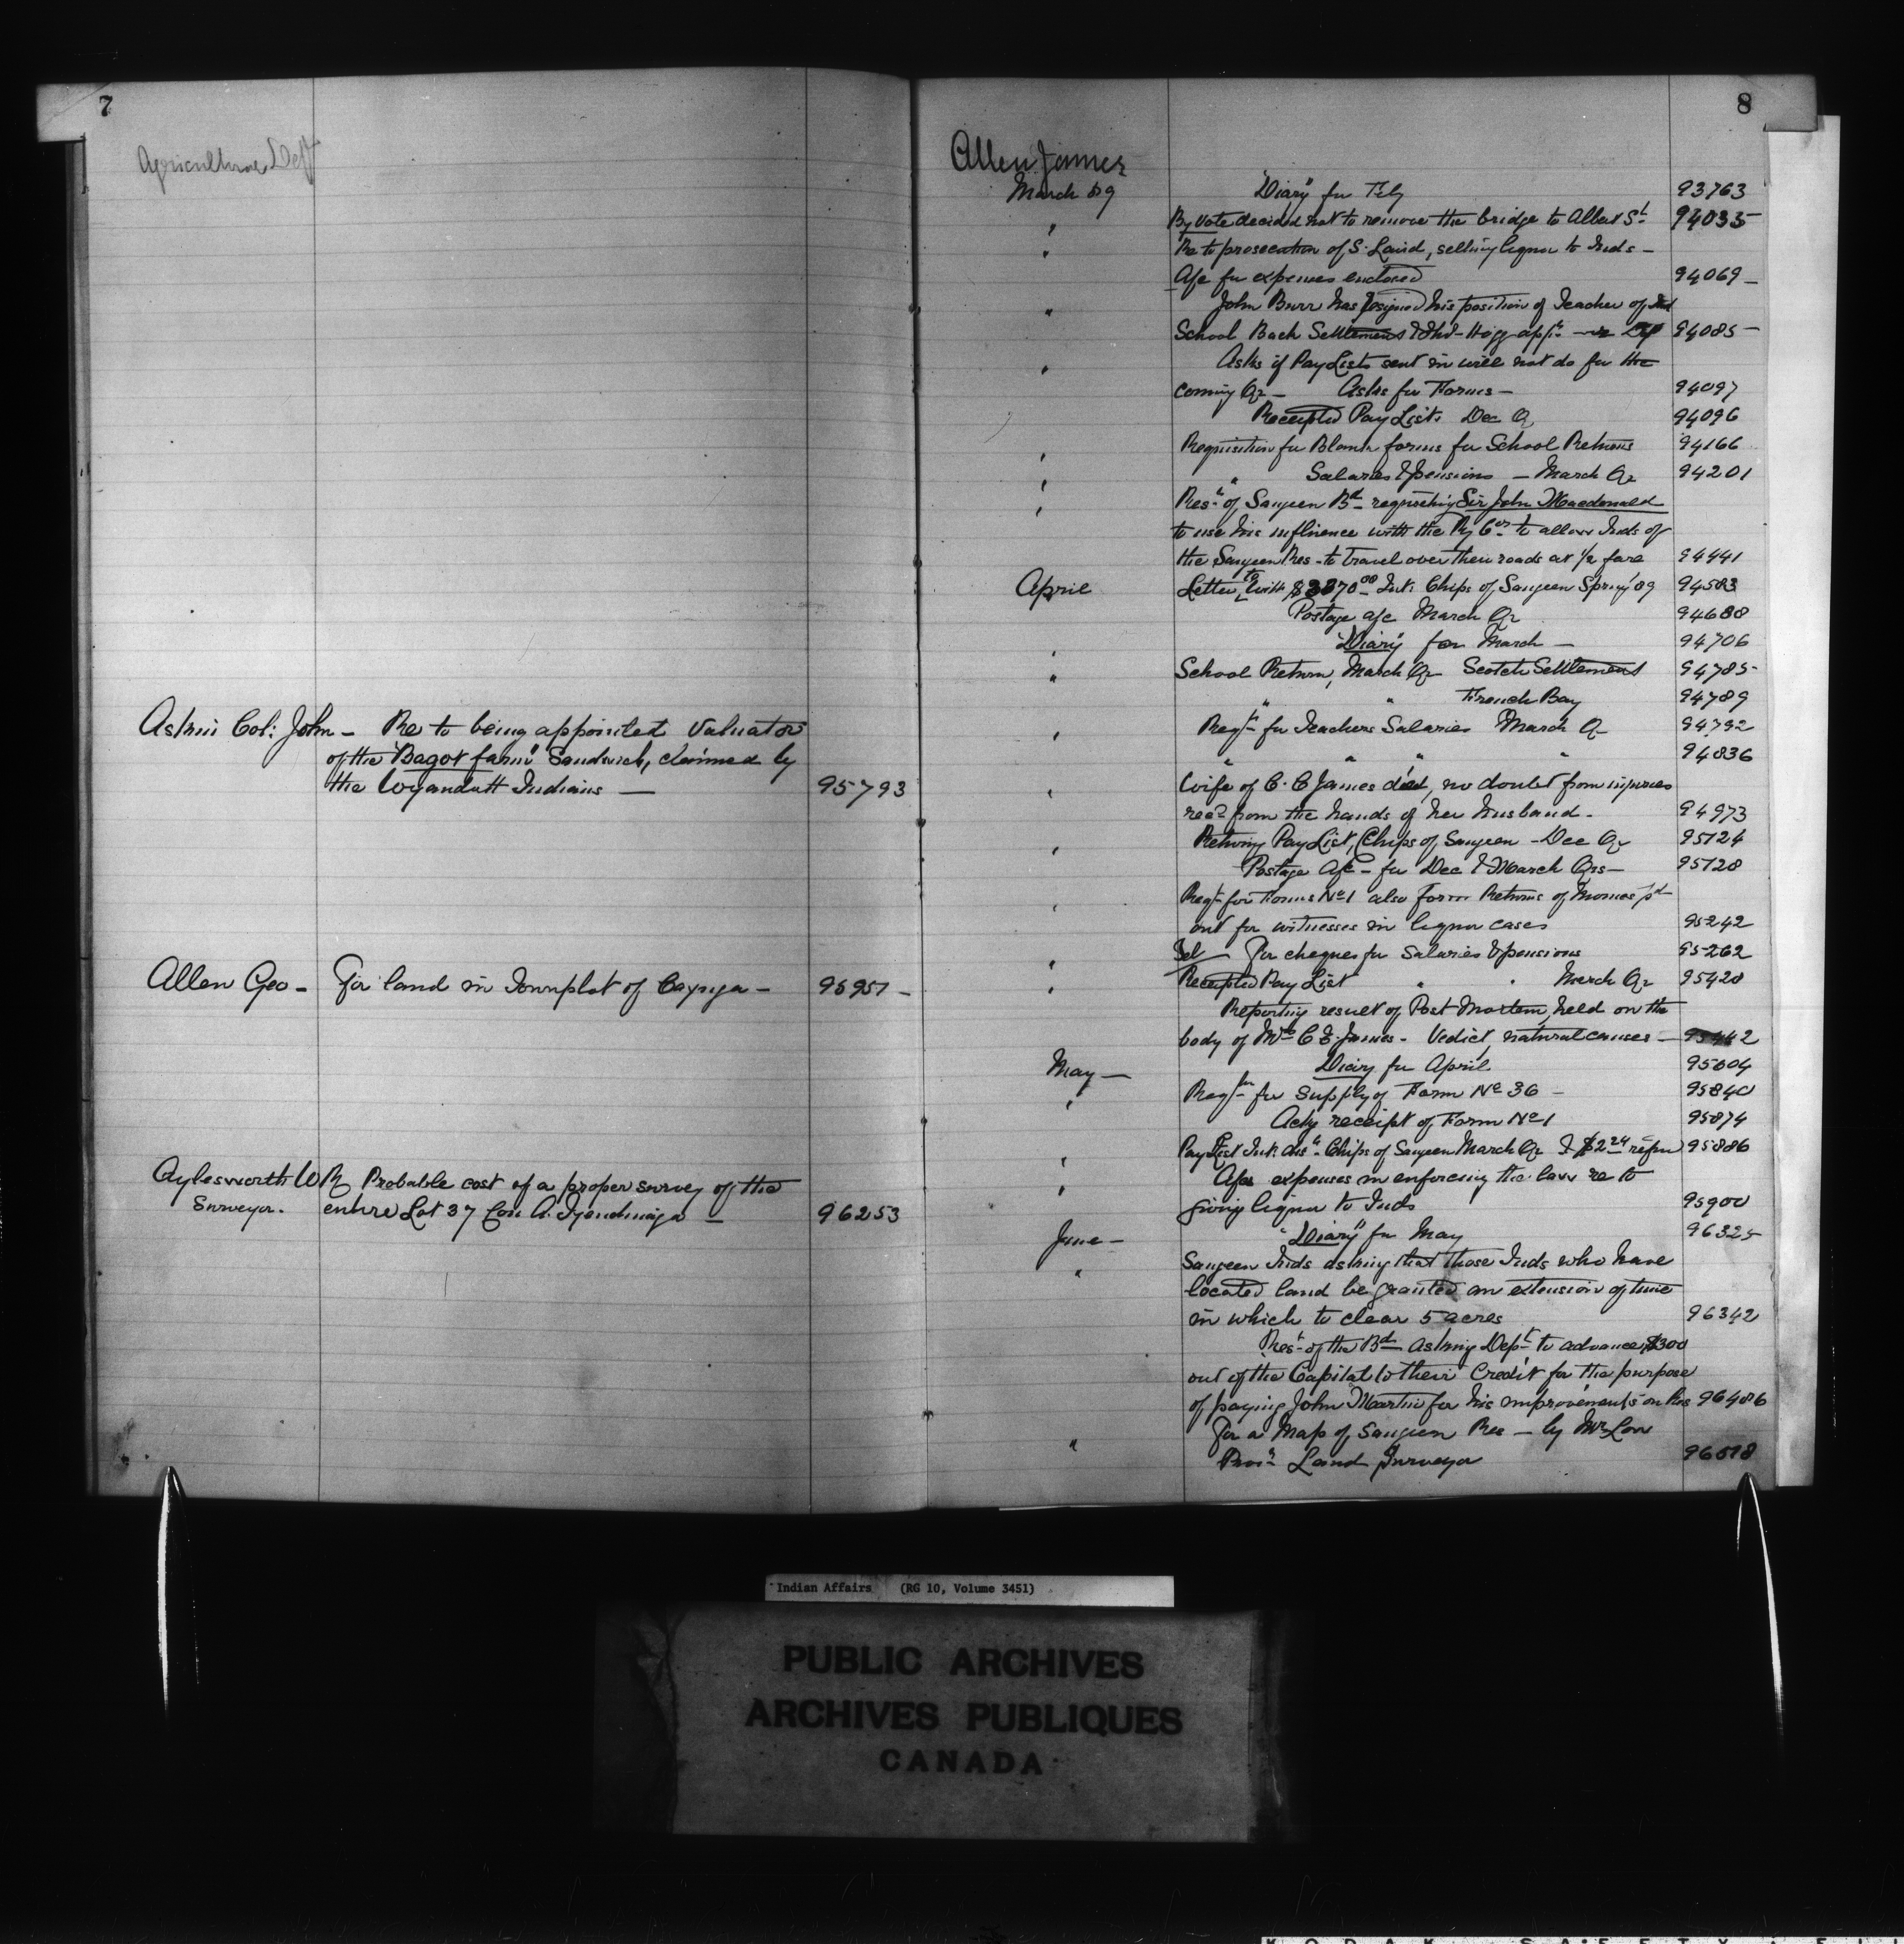 7
Agriculture Dept
Askin Col: John - Re to being appointed Valuator
of the "Bagot farm" Sandwich, claimed by
the Wyandott Indians — 95793
Allen Geo - For land in Townplot of Cayuga - 95951 -
Aylesworth W R Probable cost of a proper survey of the
Surveyor. entire Lot 37 Con A. Tyendinaga - 96253
8
Allen James
March 89 "Diary" for Feby 93763
" By vote decided not to remove the bridge to Albert St 94035
" Re to prosecution of S. Laird, selling liquor to Inds -
A/c for expenses enclosed 94069 -
" John Burr has resigned his position of Teacher of
School Back Settlement & Hogg app 94085 -
" Asks if Pay Lists sent in will not do for the
coming Qr - Asks for Forms - 94097
Receipted Pay Lists Dec Q 94096
" Requisition for Blank forms for School Returns 94166
" " Salaries & pensions - March Qr 94201
" Resn of Saugeen Bd requesting Sir John Macdonald
to use his influence with the Ry Cos to allow Inds of
the Saugeen Res - to travel over their roads at 1/2 fare 94441
April Letter to with $3370.00 Int: Chips of Saugeen Spring '89 94583
Postage a/c March Qr 94688
" "Diary" for March - 94706
" School Return, March Qr Scotch Settlement 94785
" " French Bay 94789
" Reqn for Teachers Salaries March Q - 94792
" " " " 94836
" Wife of C. C James died, no doubt from injuries
recd from the hands of her husband - 94973
" Retiring Pay List, Chips of Saugeen - Dec Qr 95124
Postage A/c - for Dec & March Qrs - 95128
" Reqn for Forms No 1 also form Returns of monies pd
out for witnesses in liquor cases 95242
" Tel For cheques for Salaries & pensions 95262
" Receipted Pay List " " March Qr 95420
Reporting result of Post Mortem, held on the
body of Mrs C E. James - Vedict, natural causes - 95442
May - Diary for April 95604
" Reqn for supply of Form No 36 - 95840
Ackg receipt of Form No 1 95874
" Pay List Int: Chips of Saugeen March Qr & $2.24 refun 95886
" A/cs expenses in enforcing the law re to
giving liquor to Inds 95900
June - "Diary" for May 96325
" Saugeen Inds asking that those Inds who have
located land be granted an extension of time
in which to clear 5 acres 96342
Resn of the Bd asking Dept to advance $300
out of the Capital to their Credit for the purpose
of paying John Martin for his improvements on Res 96486
" For a Map of Saugeen Res - by Mr Low
Provl Land Surveyor 96518
Indian Affairs (RG 10, Volume 3451)
PUBLIC ARCHIVES
ARCHIVES PUBLIQUES
CANADA